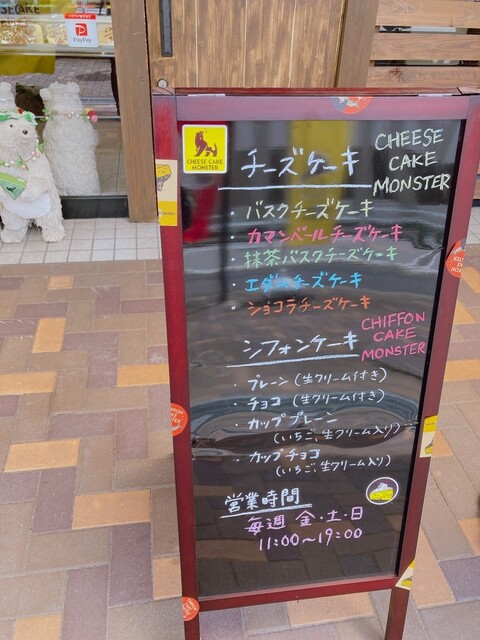 PayPay
CHEESE CAKE
MONSTER
チーズケーキ
CHEESE
CAKE
MONSTER
・バスクチーズケーキ
・カマンベールチーズケーキ
・抹茶バスクチーズケーキ
・エダムチーズケーキ
・ショコラチーズケーキ
シフォンケーキ
CHIFFON
CAKE
MONSTER
・プレーン(生クリーム付き)
・チョコ(生クリーム付き)
・カッププレーン
(いちご、生クリーム入り)
・カップチョコ
(いちご、生クリーム入り)
営業時間
毎週 金・土・日
11:00〜19:00